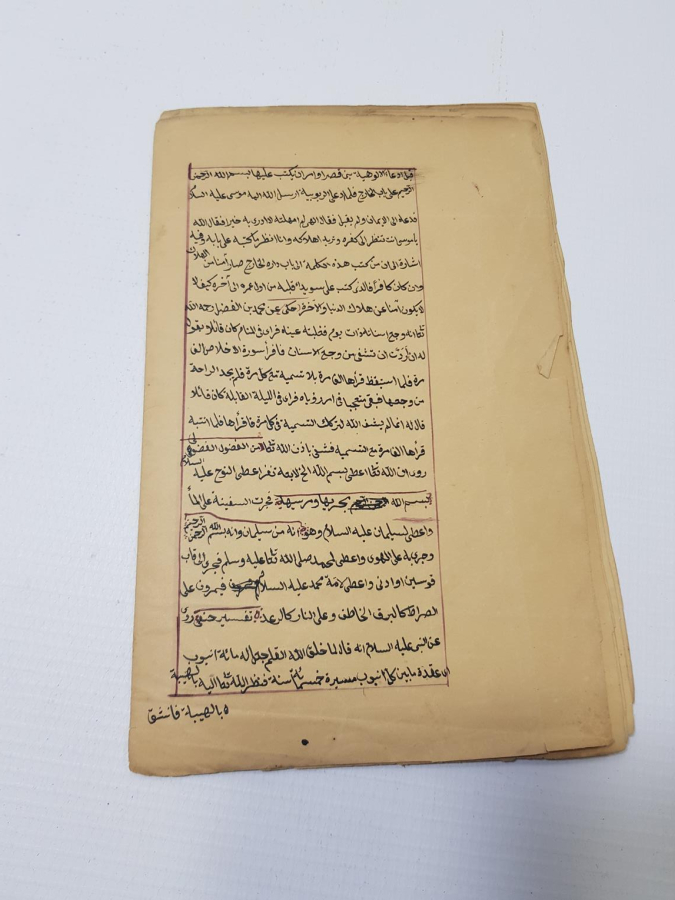 قبل ادعاء الالوهية بنى قصرا وامر ان يكتب عليها بسم الله الرحمن
الرحيم على باب الخارج فلما ادعى الربوبية ارسل الله اليه موسى عليه السلام
فدعاه الى الايمان ولم يقبل فقال الهى لم امهلته فما ارى به خيرا فقال الله
يا موسى انت تنظر الى كفره وتريد اهلاكه وانا انظر ما كتبه على بابه وفيه
اشارة الى ان من كتب هذه الكلمة الى باب داره الخارج صار آمنا من الهلاك
وان كان كافرا فالذى كتب على سويداء قلبه من اول عمره الى آخره كيف لا
يكون آمنا عن هلاك الدنيا والآخرة حكى عن محمد بن الفضل رحمه الله
تعالى انه وجع اسنانه ذات يوم فغلبته عينه فرأى فى المنام كان قائلا يقول
له ان أردت ان تشفى من وجع الاسنان فاقرأ سورة الاخلاص الف
مرة فلما استيقظ قرأها الف مرة بلا تسمية مع كل مرة فلم يجد الراحة
من وجعها فبقى متعجبا فى امر رؤياه فرأى فى الليلة القابلة كان قائلا
قال له انما لم يشف الله لترك التسمية فى كل مرة فاقرأها فلما انتبه
قرأها الف مرة مع التسمية فشفى باذن الله تعالى من
روى ان الله تعالى اعطى بسم الله الخ لاربعة نفر اعطى النوح عليه السلام
بسم الله مجريها ومرسيها فجرت السفينة على الماء
واعطى لسليمان عليه السلام وهو انه من سليمان وانه بسم الله الرحمن الرحيم
وجرى به على الهوى واعطى لمحمد صلى الله تعالى عليه وسلم فجرى الى قاب
قوسين او ادنى واعطى لامة محمد عليه السلام فيمرون على
الصراط كالبرق الخاطف وعلى النار كالرعد تفسير حنفى روى
عن النبى عليه السلام انه قال لما خلق الله القلم جعل له مائة انبوب
اى عقدة ما بين كل انبوب مسيرة خمسمائة سنة فنظر الله تعالى اليه بالهيبة
بالهيبة فانشق